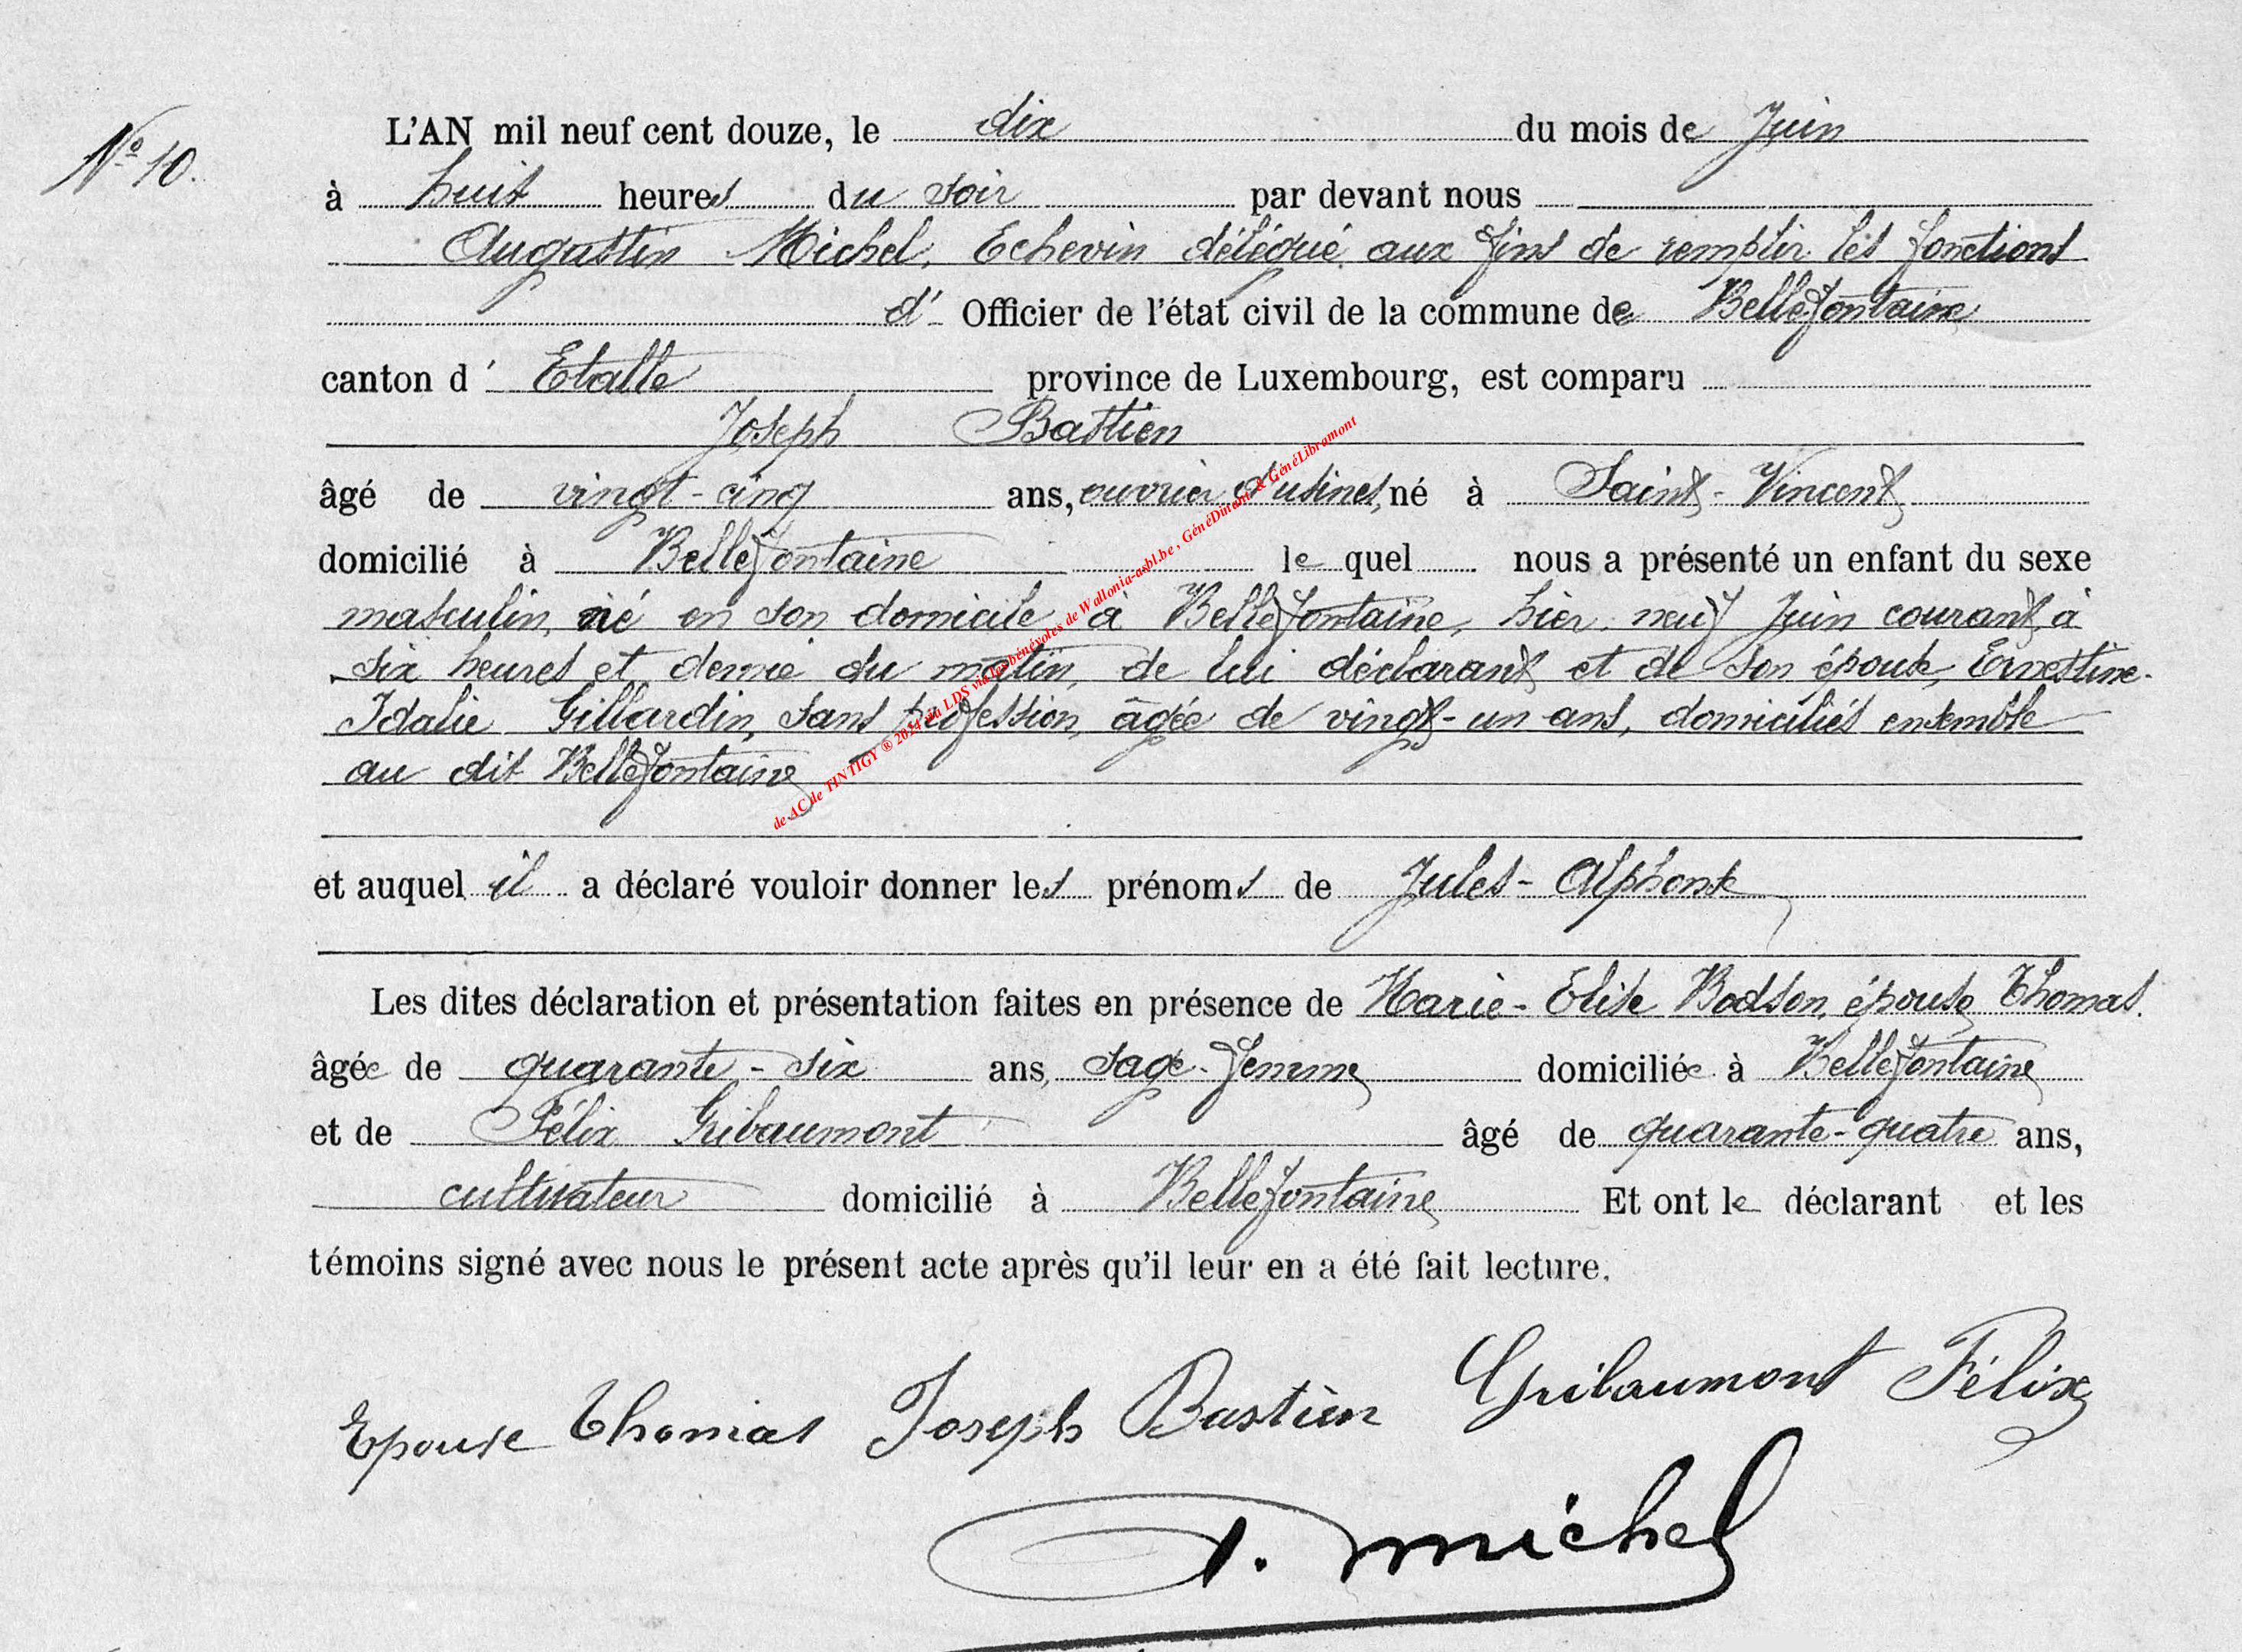 N° 10.
L'AN mil neuf cent douze, le dix du mois de Juin
à huit heures du soir par devant nous
Augustin Michel, Echevin délégué aux fins de remplir les fonctions
d' Officier de l'état civil de la commune de Bellefontaine
canton d' Etalle province de Luxembourg, est comparu
Joseph Bastien
âgé de vingt-cinq ans, ouvrier d'usines, né à Saint-Vincent
domicilié à Bellefontaine le quel nous a présenté un enfant du sexe
masculin, né en son domicile à Bellefontaine, hier, neuf Juin courant, à
six heures et demie du matin, de lui déclarant et de son épouse, Ernestine-
Idalie Gillardin, sans profession, âgée de vingt-un ans, domiciliés ensemble
au dit Bellefontaine
et auquel il a déclaré vouloir donner les prénoms de Jules-Alphonse
Les dites déclaration et présentation faites en présence de Marie-Elise Bodson, épouse Thomas.
âgée de quarante-six ans, sage-femme domiciliée à Bellefontaine
et de Félix Gribaumont âgé de quarante-quatre ans,
cultivateur domicilié à Bellefontaine Et ont le déclarant et les
témoins signé avec nous le présent acte après qu'il leur en a été fait lecture.
Epouse Thomas Joseph Bastien Gribaumont Félix
A. Michel
de AC de TINTIGY ® 2024 via LDS via les bénévoles de Wallonia-asbl.be, GénéDinant & GénéLibramont